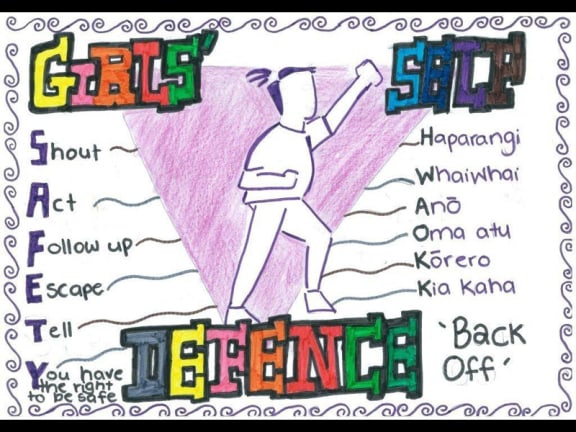 GIRLS' SELF
Shout
Act
Follow up
Escape
Tell
You have
the right
to be safe
Haparangi
Whaiwhai
Anō
Oma atu
Kōrero
Kia Kaha
DEFENCE
'Back
Off'